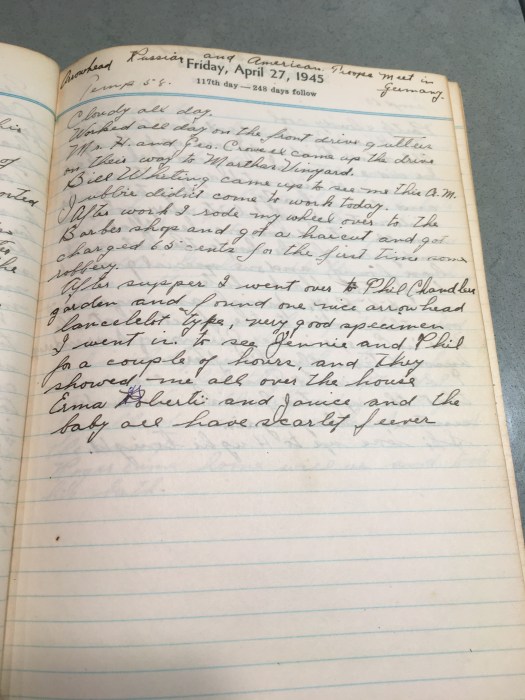 Arrowhead Russian and American Troops meet in
Germany.
Friday, April 27, 1945
Temp 58.
117th day—248 days follow
Cloudy all day.
Worked all day on the front drive gutter
Mr. H. and Geo. Crowell came up the drive
on their way to Marthas Vinyard.
Bill Whiting came up to see me this A.M.
didn't come to work today.
After work I rode my wheel over to the
Barber shop and got a haicut and got
charged 65 cents for the first time some
robbery.
After supper I went over to Phil Chandlers
garden and found one nice arrowhead
lancelot type, very good specimen
I went in to see Jennie and Phil
for a couple of hours, and they
showed me all over the house
Erma Roberti and Janice and the
baby all have scarlet feever